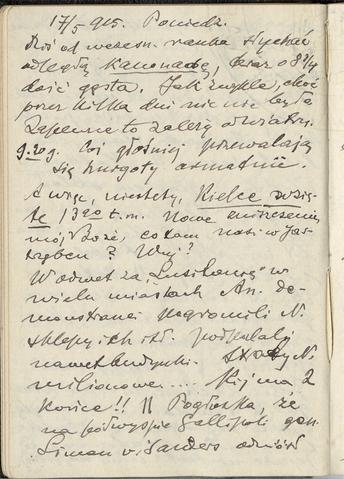 17/5 915. Poniedz.
Dziś od wczesn. ranka słychać
odległą kanonadę, teraz o 8 1/4
dość gęsta. Jak zwykle, choć
przez kilka dni nic nie było
Zapewne to zależy od wiatru.
9.20 g. Coś głośniej przewalają
się hurgoty armatnie.
A więc, niestety, Kielce wzię-
te 13 t.m. Nowe zniszczenie,
mój Boże, co tam nasi w Jas-
trzębcu? Wuj?
W odwet za "Lusitanię" w
wielu miastach An. de-
monstranci pogromili N.
sklepy, ich itd. podpalali
nawet budynki. Straty N.
milionowe.... Kij ma 2
końce!! || Pogłoska, że
na półwyspie Gallipoli gen.
Liman v. Sanders odniósł